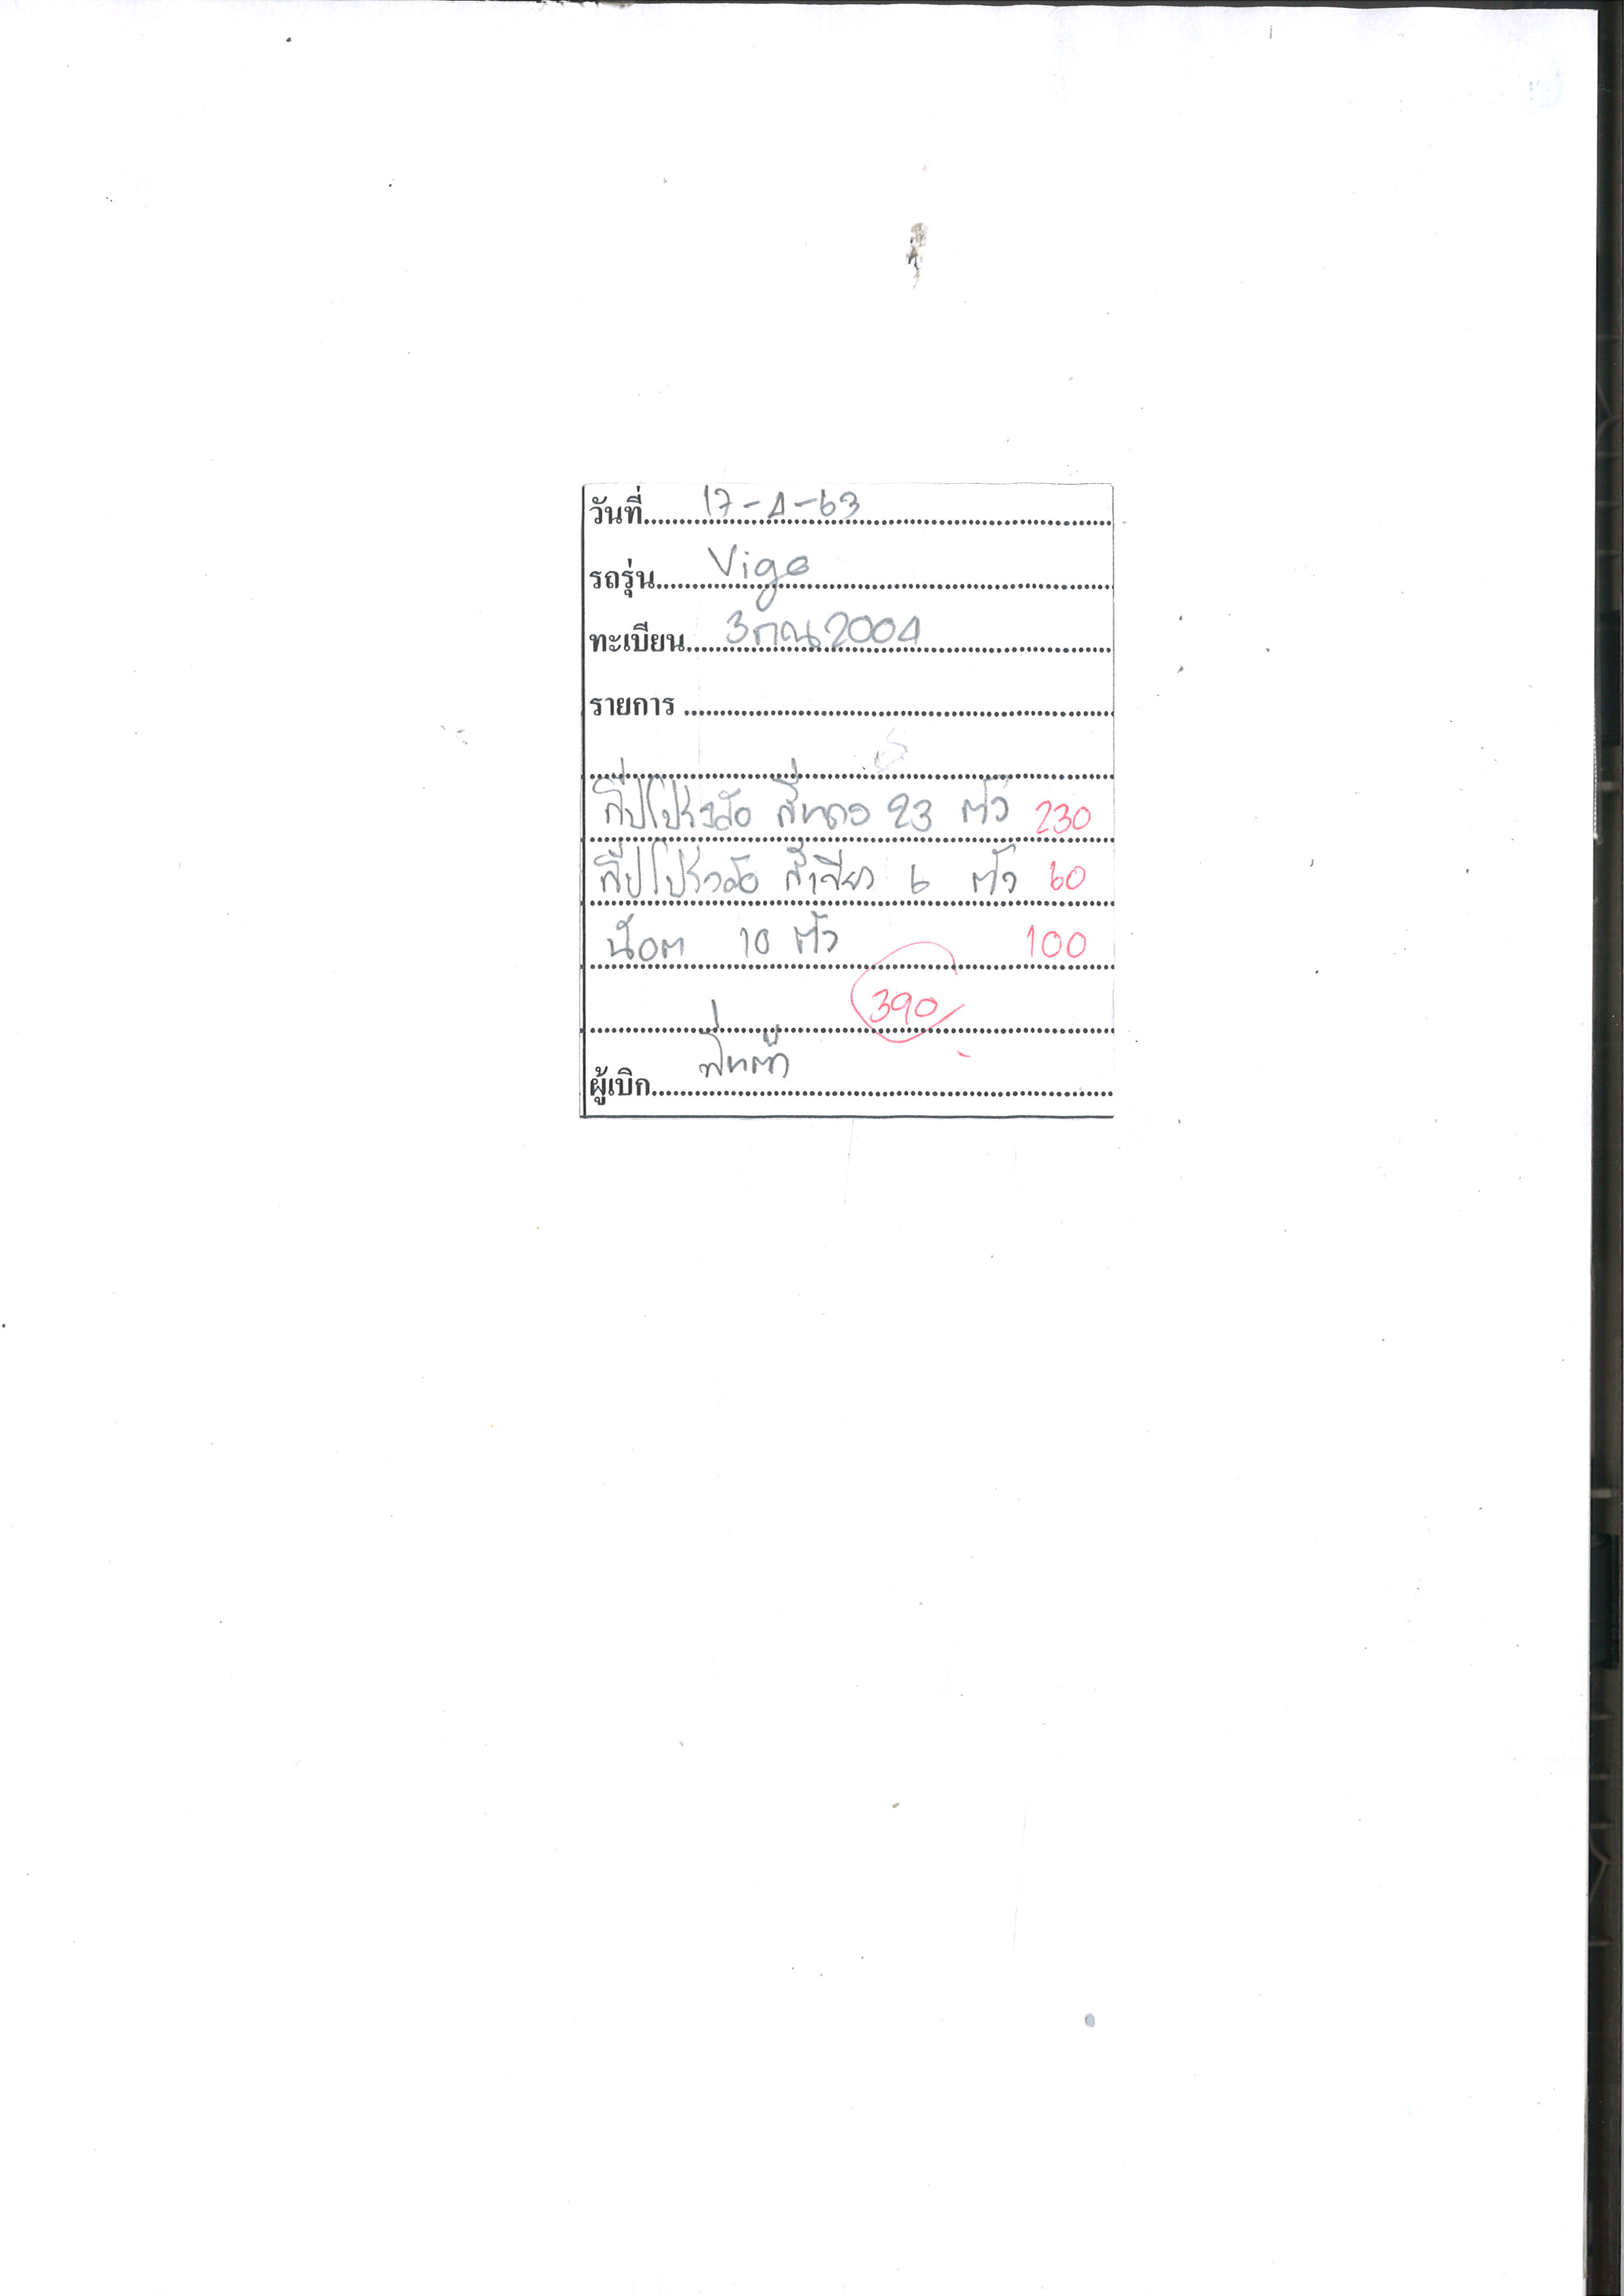 วันที่ 17-4-63
รถรุ่น Vigo
ทะเบียน 3กณ2004
รายการ
กิ๊ปโปร่งล้อ สีแดง 23 ตัว 230
กิ๊ปโปร่งล้อ สีเขียว 6 ตัว 60
น๊อต 10 ตัว 100
390
ผู้เบิก